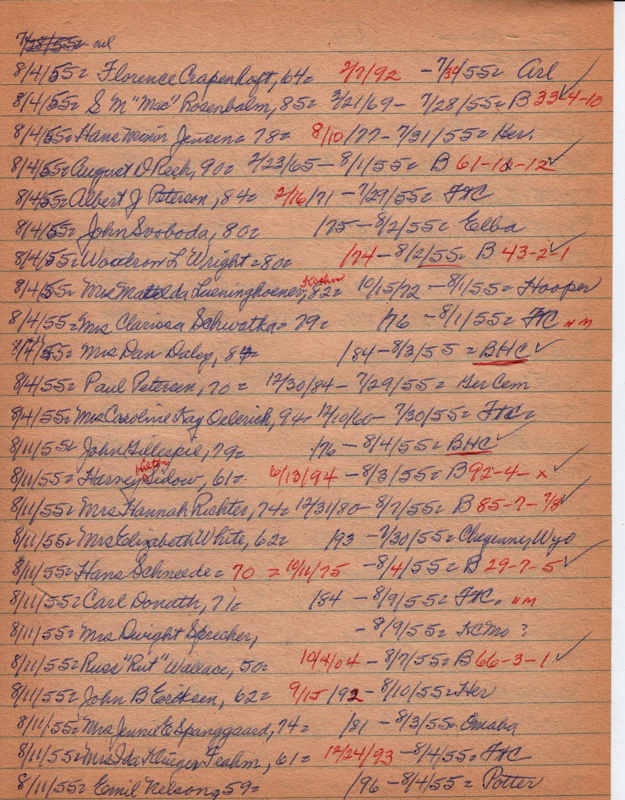 7/28/55= Arl
8/4/55= Florence Crapenhoft, 64= 2/7/92 - 7/30/55= Arl
8/4/55= S M "Mac" Rosenbalm, 85= 3/21/69 - 7/28/55= B 33-4-10 ✓
8/4/55= Hans Meinor Jensen= 78= 8/10/77 - 7/31/55= Her
8/4/55= August D Peck, 90= 2/23/65 - 8/1/55= B 61-10-12 ✓
8/4/55= Albert J Peterson, 84= 2/16/71 - 7/29/55= FtC
8/4/55= John Svoboda, 80= /75 - 8/2/55= Elba
8/4/55= Woodrow L Wright= 80= /74 - 8/2/55= B 43-2-1 ✓
8/4/55= Mrs Matilda Lueninghoener, Koehn 82= 10/15/72 - 8/1/55= Hooper
8/4/55= Mrs Clarissa Schwatka= 79= /76 - 8/1/55= FC NM
8/4/55= Mrs Dan Daley, 87= /84 - 8/3/55= BHC ✓
8/4/55= Paul Petersen, 70= 12/30/84 - 7/29/55= Ger Cem
8/4/55= Mrs Caroline Kay Oelerich, 94= 12/10/60 - 7/30/55= FtC=
8/11/55= John Gillespie, 79= /76 - 8/4/55= BHC ✓
8/11/55= Harney Hilton Sidow, 61= 6/13/94 - 8/3/55= B 92-4-x ✓
8/11/55= Mrs Hannah Richter, 74= 12/31/80 - 8/7/55= B 85-7-7/8 ✓
8/11/55= Mrs Elizabeth White, 62= /93 - 7/30/55= Cheyenne, Wyo
8/11/55= Hans Schneede= 70= 10/11/75 - 8/4/55= B 29-7-5 ✓
8/11/55= Carl Donath, 71= /84 - 8/9/55= FtC. NM
8/11/55= Mrs Dwight Sprecher, - 8/9/55= KCMo?
8/11/55= Russ "Rut" Wallace, 50= 10/4/04 - 8/7/55= B 66-3-1 ✓
8/11/55= John B Ericksen, 62= 9/15/92 - 8/10/55= Her
8/11/55= Mrs Jennie E Spanggaard, 74= /81 - 8/3/55= Omaha
8/11/55= Mrs Ida Klieger Feahm, 61= 12/24/93 - 8/4/55= FtC
8/11/55= Emil Nelson, 59= /96 - 8/4/55= Potter